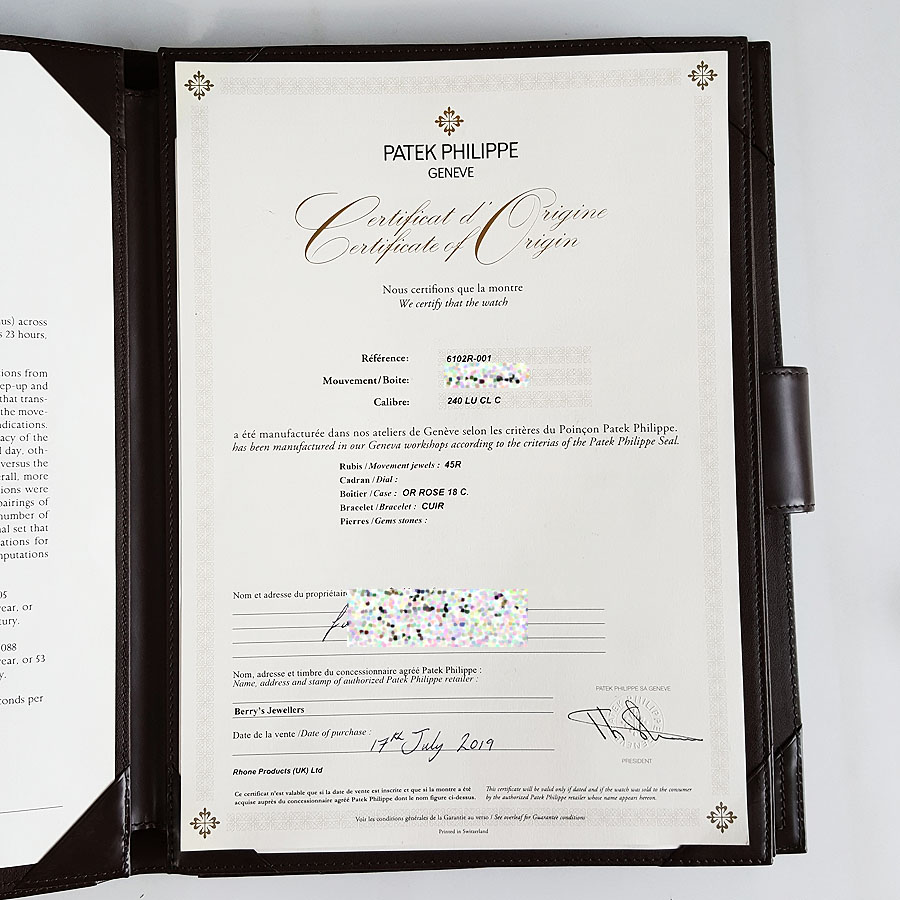 us) across
s 23 hours,
ions from
ep-up and
that trans-
the move-
ndications.
acy of the
l day, oth-
versus the
erall, more
ions were
pairings of
number of
nal set that
ations for
mputations
05
year, or
tury.
088
year, or 53
y.
conds per
PATEK PHILIPPE
GENEVE
Certificat d'Origine
Certificate of Origin
Nous certifions que la montre
We certify that the watch
Référence: 6102R-001
Mouvement/Boite:
Calibre: 240 LU CL C
a été manufacturée dans nos ateliers de Genève selon les critères du Poinçon Patek Philippe.
has been manufactured in our Geneva workshops according to the criterias of the Patek Philippe Seal.
Rubis / Movement jewels : 45R
Cadran / Dial :
Boîtier / Case : OR ROSE 18 C.
Bracelet / Bracelet : CUIR
Pierres / Gems stones :
Nom et adresse du propriétaire
Nom, adresse et timbre du concessionnaire agréé Patek Philippe :
Name, address and stamp of authorized Patek Philippe retailer :
Berry's Jewellers
Date de la vente / Date of purchase : 17th July 2019
Rhone Products (UK) Ltd
PATEK PHILIPPE SA GENEVE
PRESIDENT
Ce certificat n'est valable que si la date de vente est inscrite et que si la montre a été
acquise auprès du concessionnaire agréé Patek Philippe dont le nom figure ci-dessus.
This certificate will be valid only if dated and if the watch was sold to the consumer
by the authorized Patek Philippe retailer whose name appears hereon.
Voir les conditions générales de la Garantie au verso / See overleaf for Guarantee conditions
Printed in Switzerland